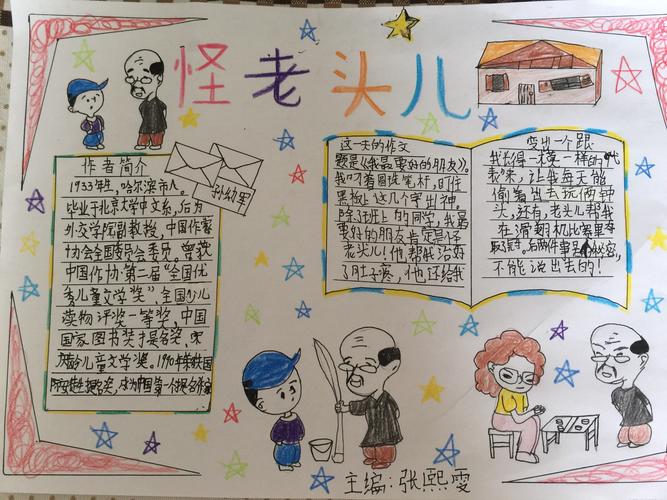 怪老头儿
作者简介
1933年生,哈尔滨市人。
毕业于北京大学中文系,后为
外交学院副教授,中国作家
协会全国委员会委员。曾获
中国作协第二届“全国优
秀儿童文学奖”、全国少儿
读物评奖一等奖,中国
国家图书奖提名奖,宋
庆龄儿童文学奖。1990年获国
提名奖,成为中国第一个提名作家
孙幼军
这一天的作文
题是《我最要好的朋友》。
我叼着圆珠笔杆,盯住
黑板上这几个字出神。
除了班上的同学,我最
要好的朋友肯定是怪
老头儿!他帮我治好
了肚子疼,他还给我
变出一个跟
我长得一模一样的“代
表”来,让我每天能
偷着出去玩两钟
头,还有,老头儿帮我
在滑翔机比赛里夺
取冠军。后两件事是“秘密”,
不能说出去的!
主编:张熙雯